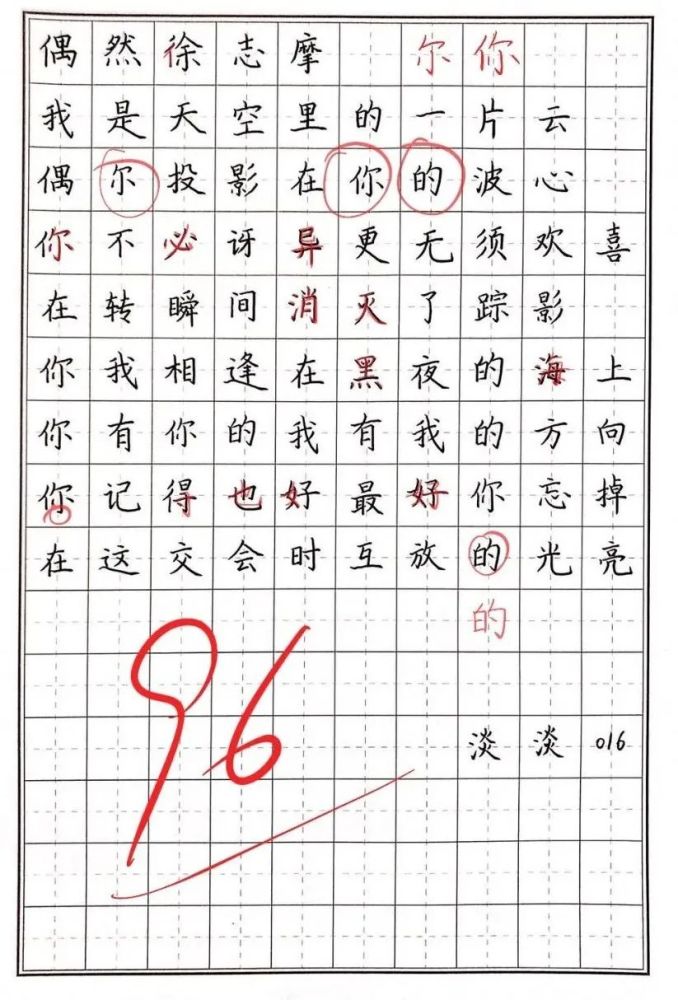 偶然徐志摩 尔你
我是天空里的一片云
偶尔投影在你的波心
你不必讶异更无须欢喜
在转瞬间消灭了踪影
你我相逢在黑夜的海上
你有你的我有我的方向
你记得也好最好你忘掉
在这交会时互放的光亮
的
96
淡淡016